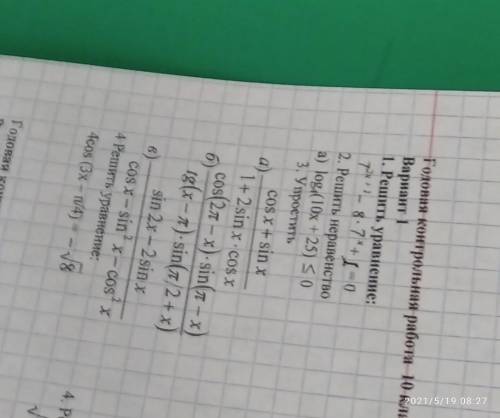 Годовая контрольная работа 10
Вариант 1
1. Решить уравнение:
7^(2x+1) − 8·7^x + 1 = 0
2. Решить неравенство
а) log₄(10x + 25) ≤ 0
3. Упростить
а) (cos x + sin x)/(1 + 2sin x·cos x)
б) (cos(2π − x)·sin(π − x))/(tg(x − π)·sin(π/2 + x))
в) (sin 2x − 2sin x)/(cos x − sin² x − cos² x)
4 Решить уравнение:
4cos(3x − π/4) = −√8
Годовая
4. Р
√
2021/5/19 08:27